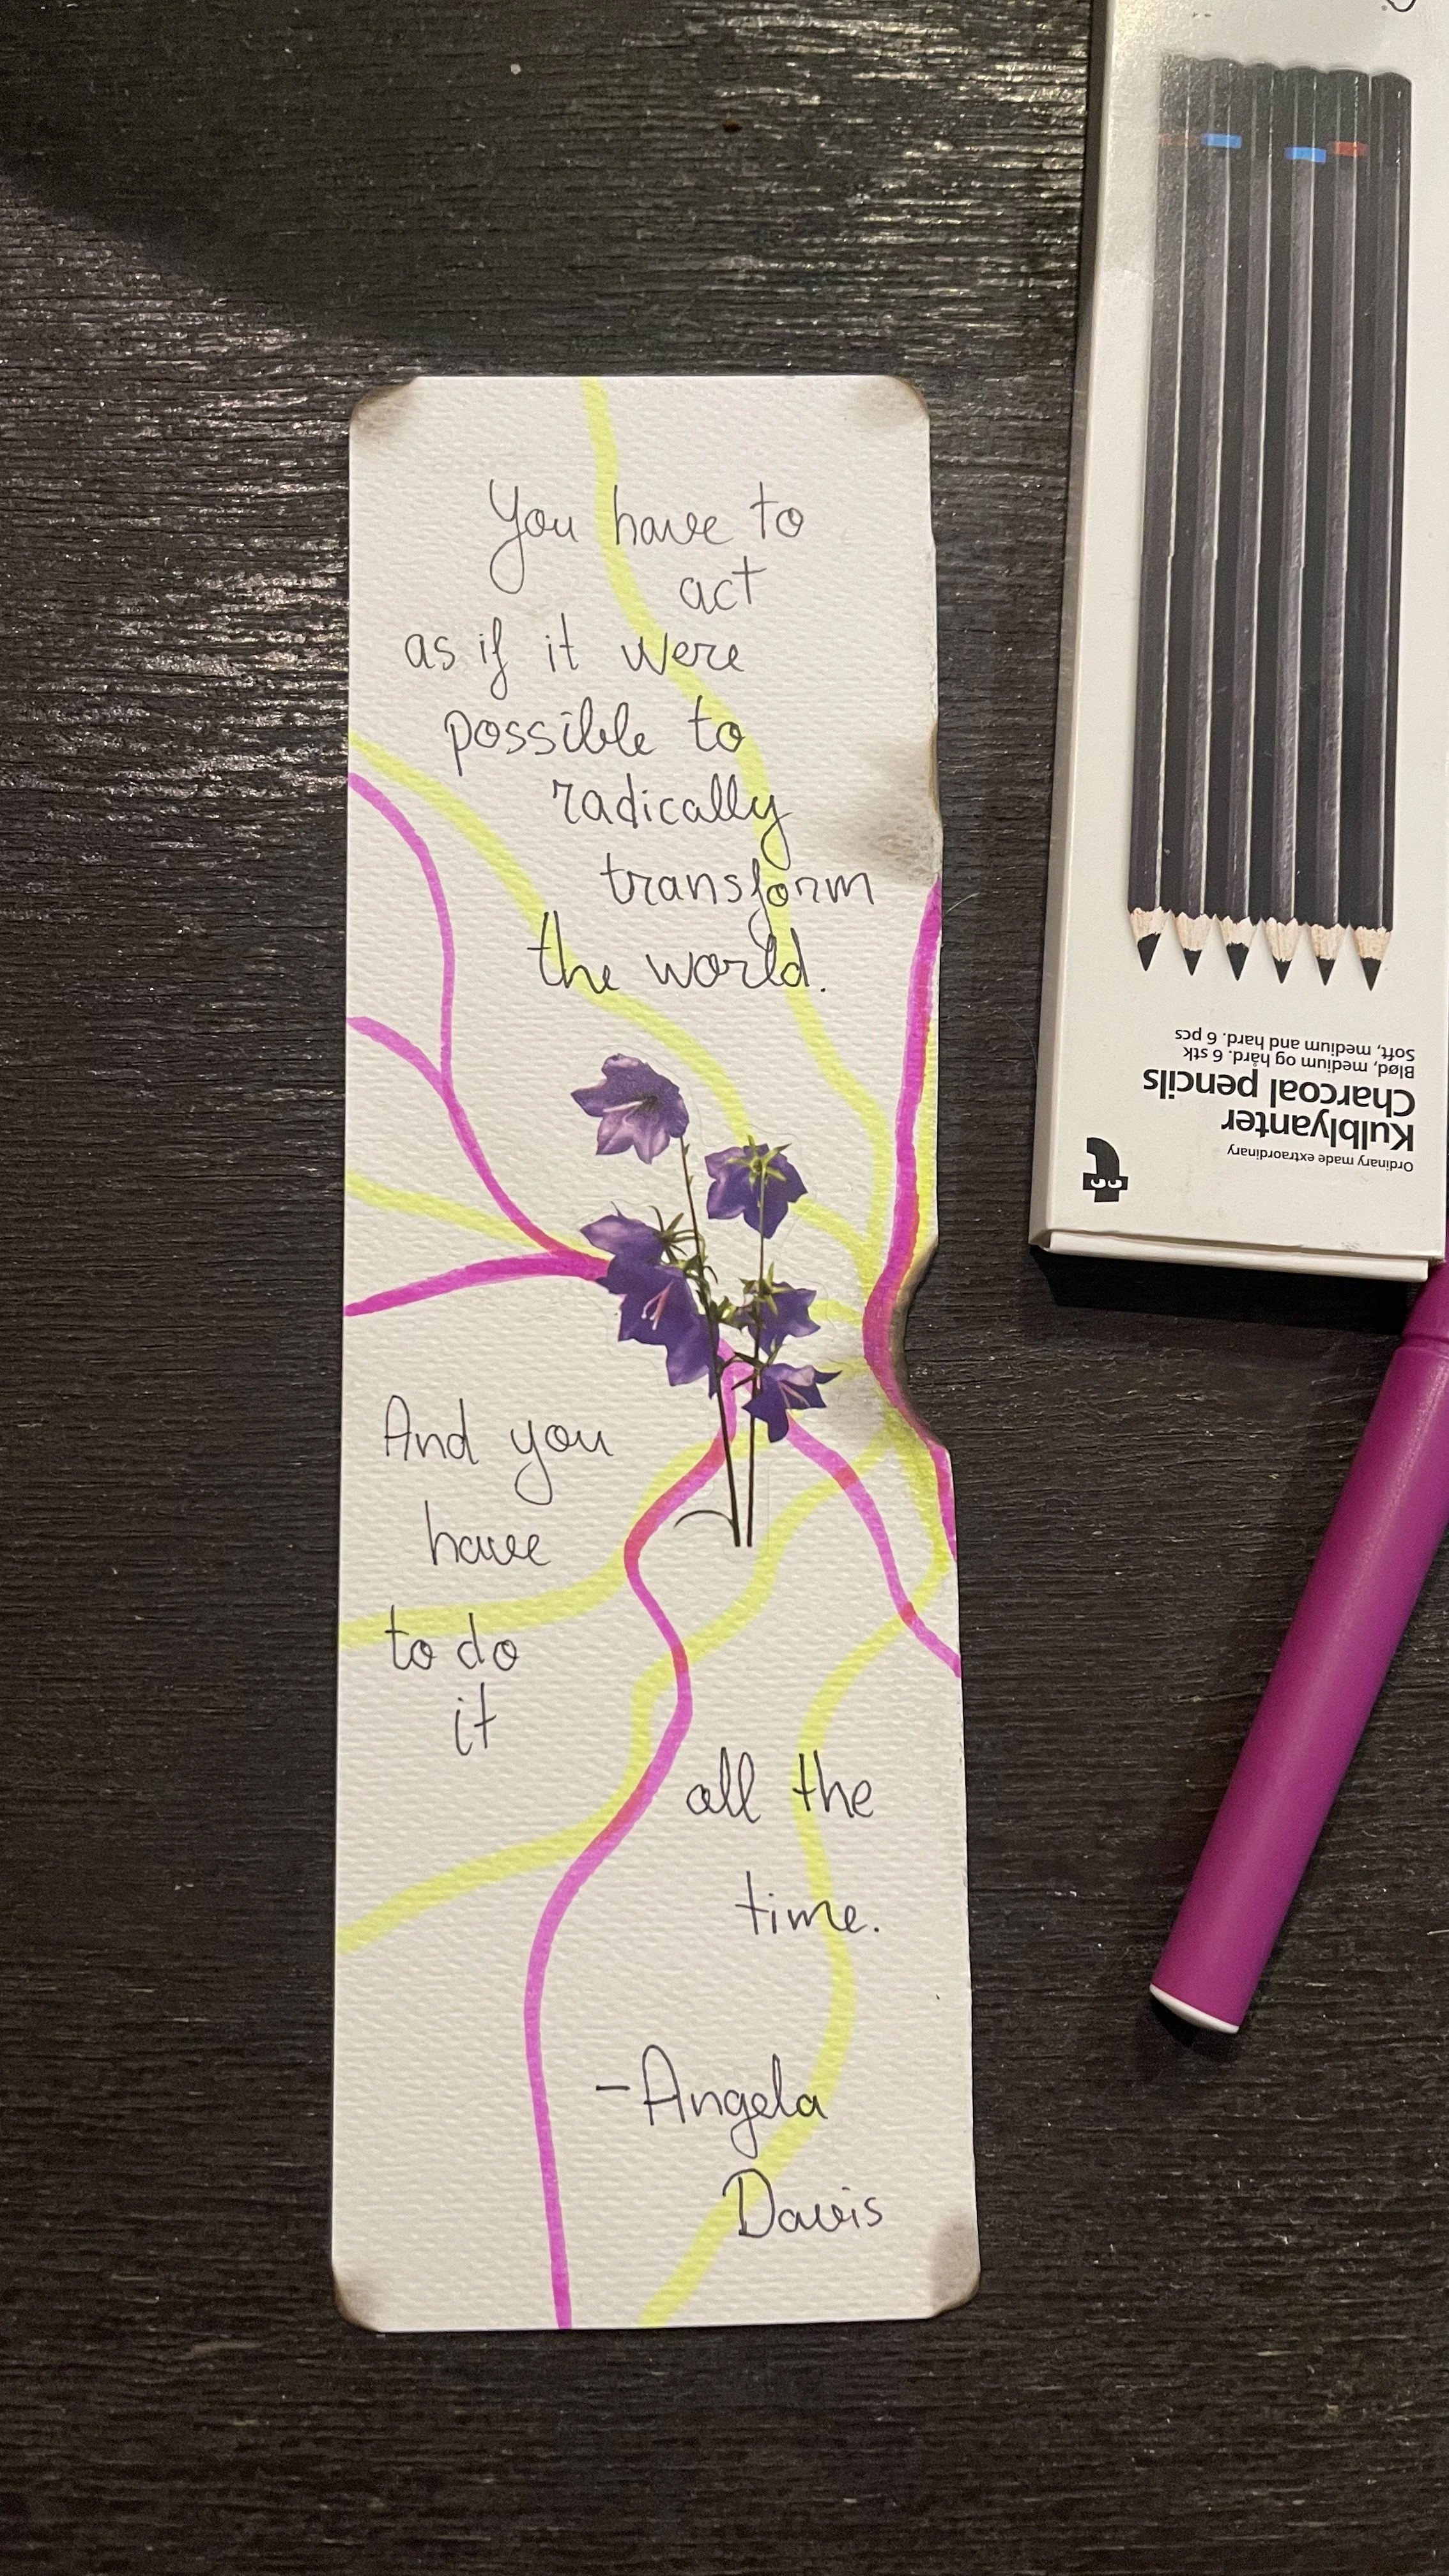 You have to
act
as if it were
possible to
radically
transform
the world.
And you
have
to do
it
all the
time.
-Angela
Davis
Ordinary made extraordinary
Kulblyanter
Charcoal pencils
Blød, medium og hård. 6 stk
Soft, medium and hard. 6 pcs